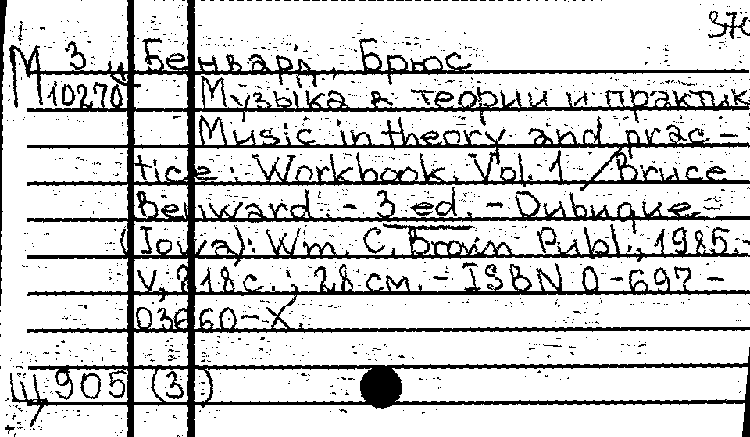 370
М 3 и Бенвард, Брюс
10270 Музыка в теории и практик
Music in theory and prac-
tice: Workbook. Vol. 1 / Bruce
Benward. - 3 ed. - Dubuque
(Iowa): Wm. C. Brown Publ., 1985.-
V, 218 с.; 28 см. - ISBN 0-697-
03660-X.
Щ 905 (3 )